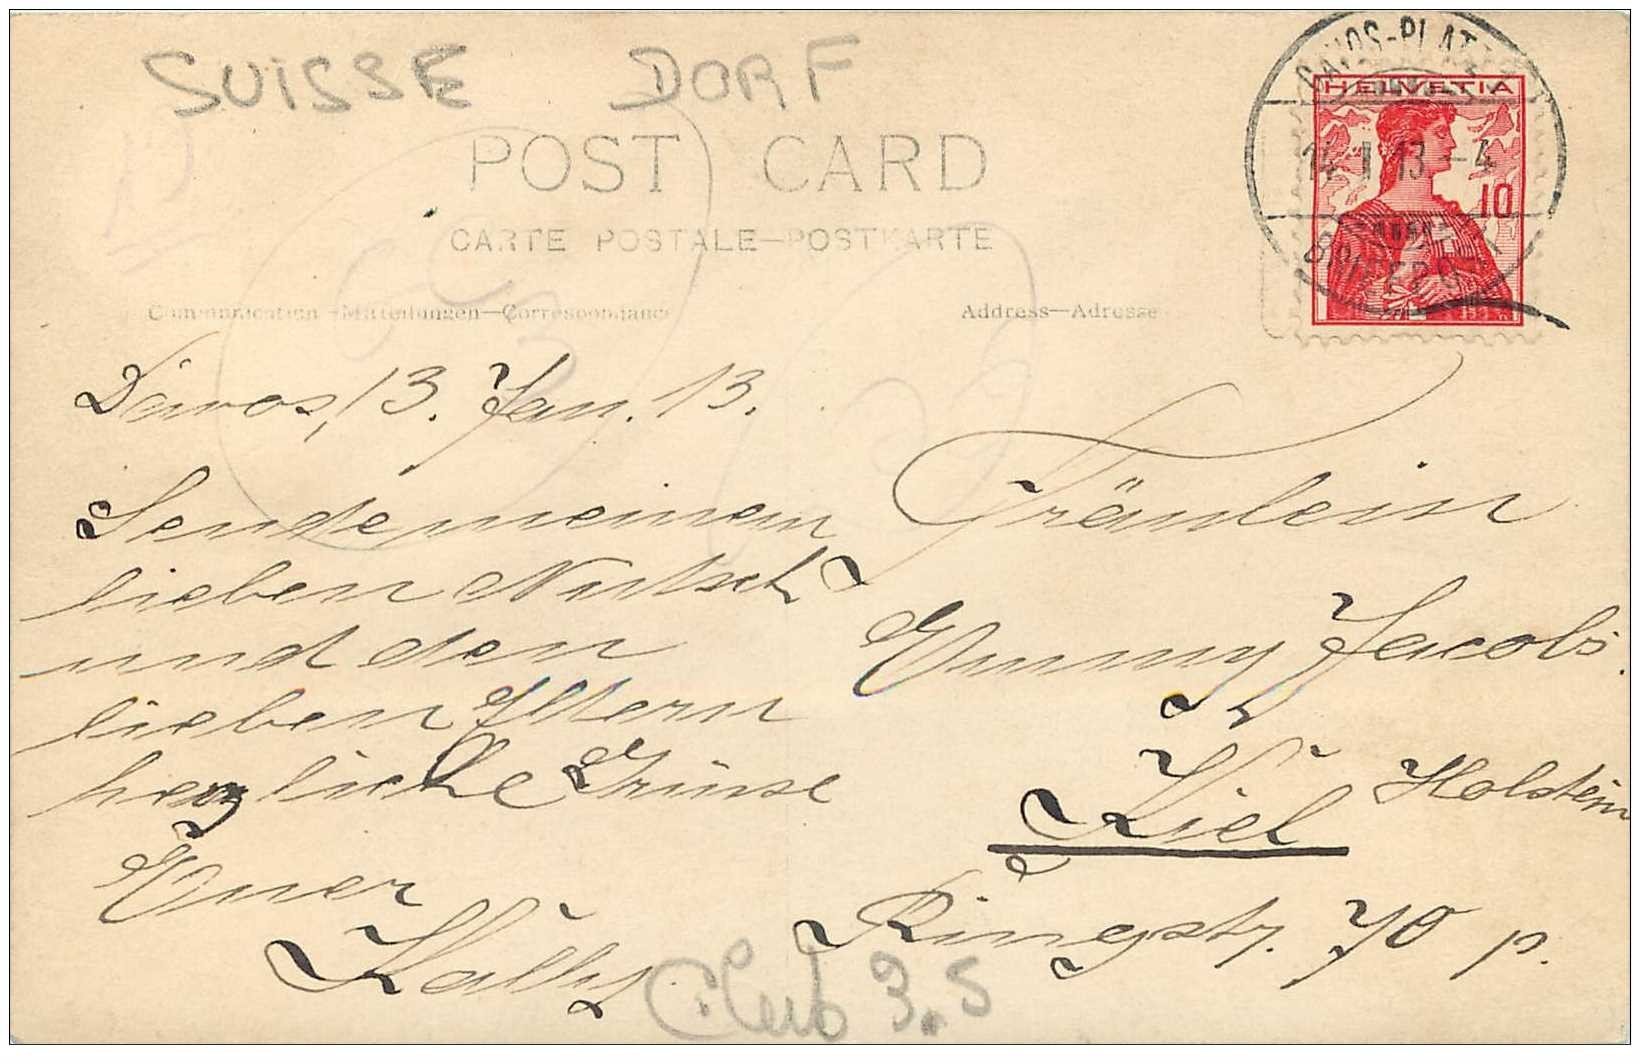 SUISSE DORF
POST CARD
CARTE POSTALE—POSTKARTE
Communication—Mitteilungen—Correspondance
Address—Adresse
DAVOS-PLATZ
14. I 13 -4
HELVETIA
10
Davos, 13. Jan. 13.
Sende meinem
lieben
und den
lieben Eltern
herzliche Grüsse
Euer
Fräulein
Emmy Jacobs.
Kiel Holstein
Ringstr. 70 p.
Club 3.5